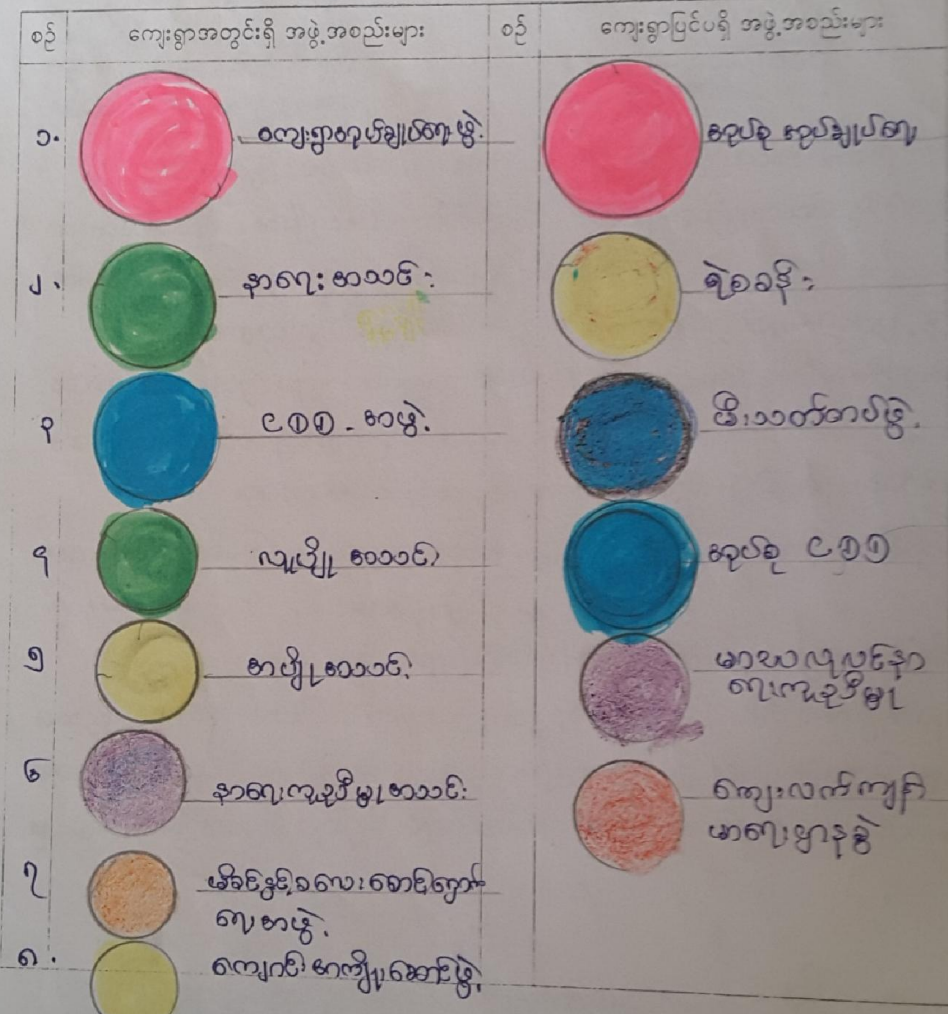 စဉ် ကျေးရွာအတွင်းရှိ အဖွဲ့အစည်းများ စဉ် ကျေးရွာပြင်ပရှိ အဖွဲ့အစည်းများ
၁. ကျေးရွာအုပ်ချုပ်ရေးဖွဲ့. အုပ်စု အုပ်ချုပ်ရေး
၂. နာရေးအသင်း ရဲစခန်း
၃ CDD - အဖွဲ့. မီးသတ်တပ်ဖွဲ့.
၄ လူပျို အသင်း အုပ်စု CDD
၅ အပျိုအသင်း
နာ
ရေးကူညီမှု
၆ နာရေးကူညီမှုအသင်း ကျေးလက်ကျန်း
မာရေးဌာနခွဲ
၇ မိခင်နှင့်ကလေးစောင့်ရှောက်
ရေးအဖွဲ့.
၈. ကျောင်းအကျိုးဆောင်ဖွဲ့.